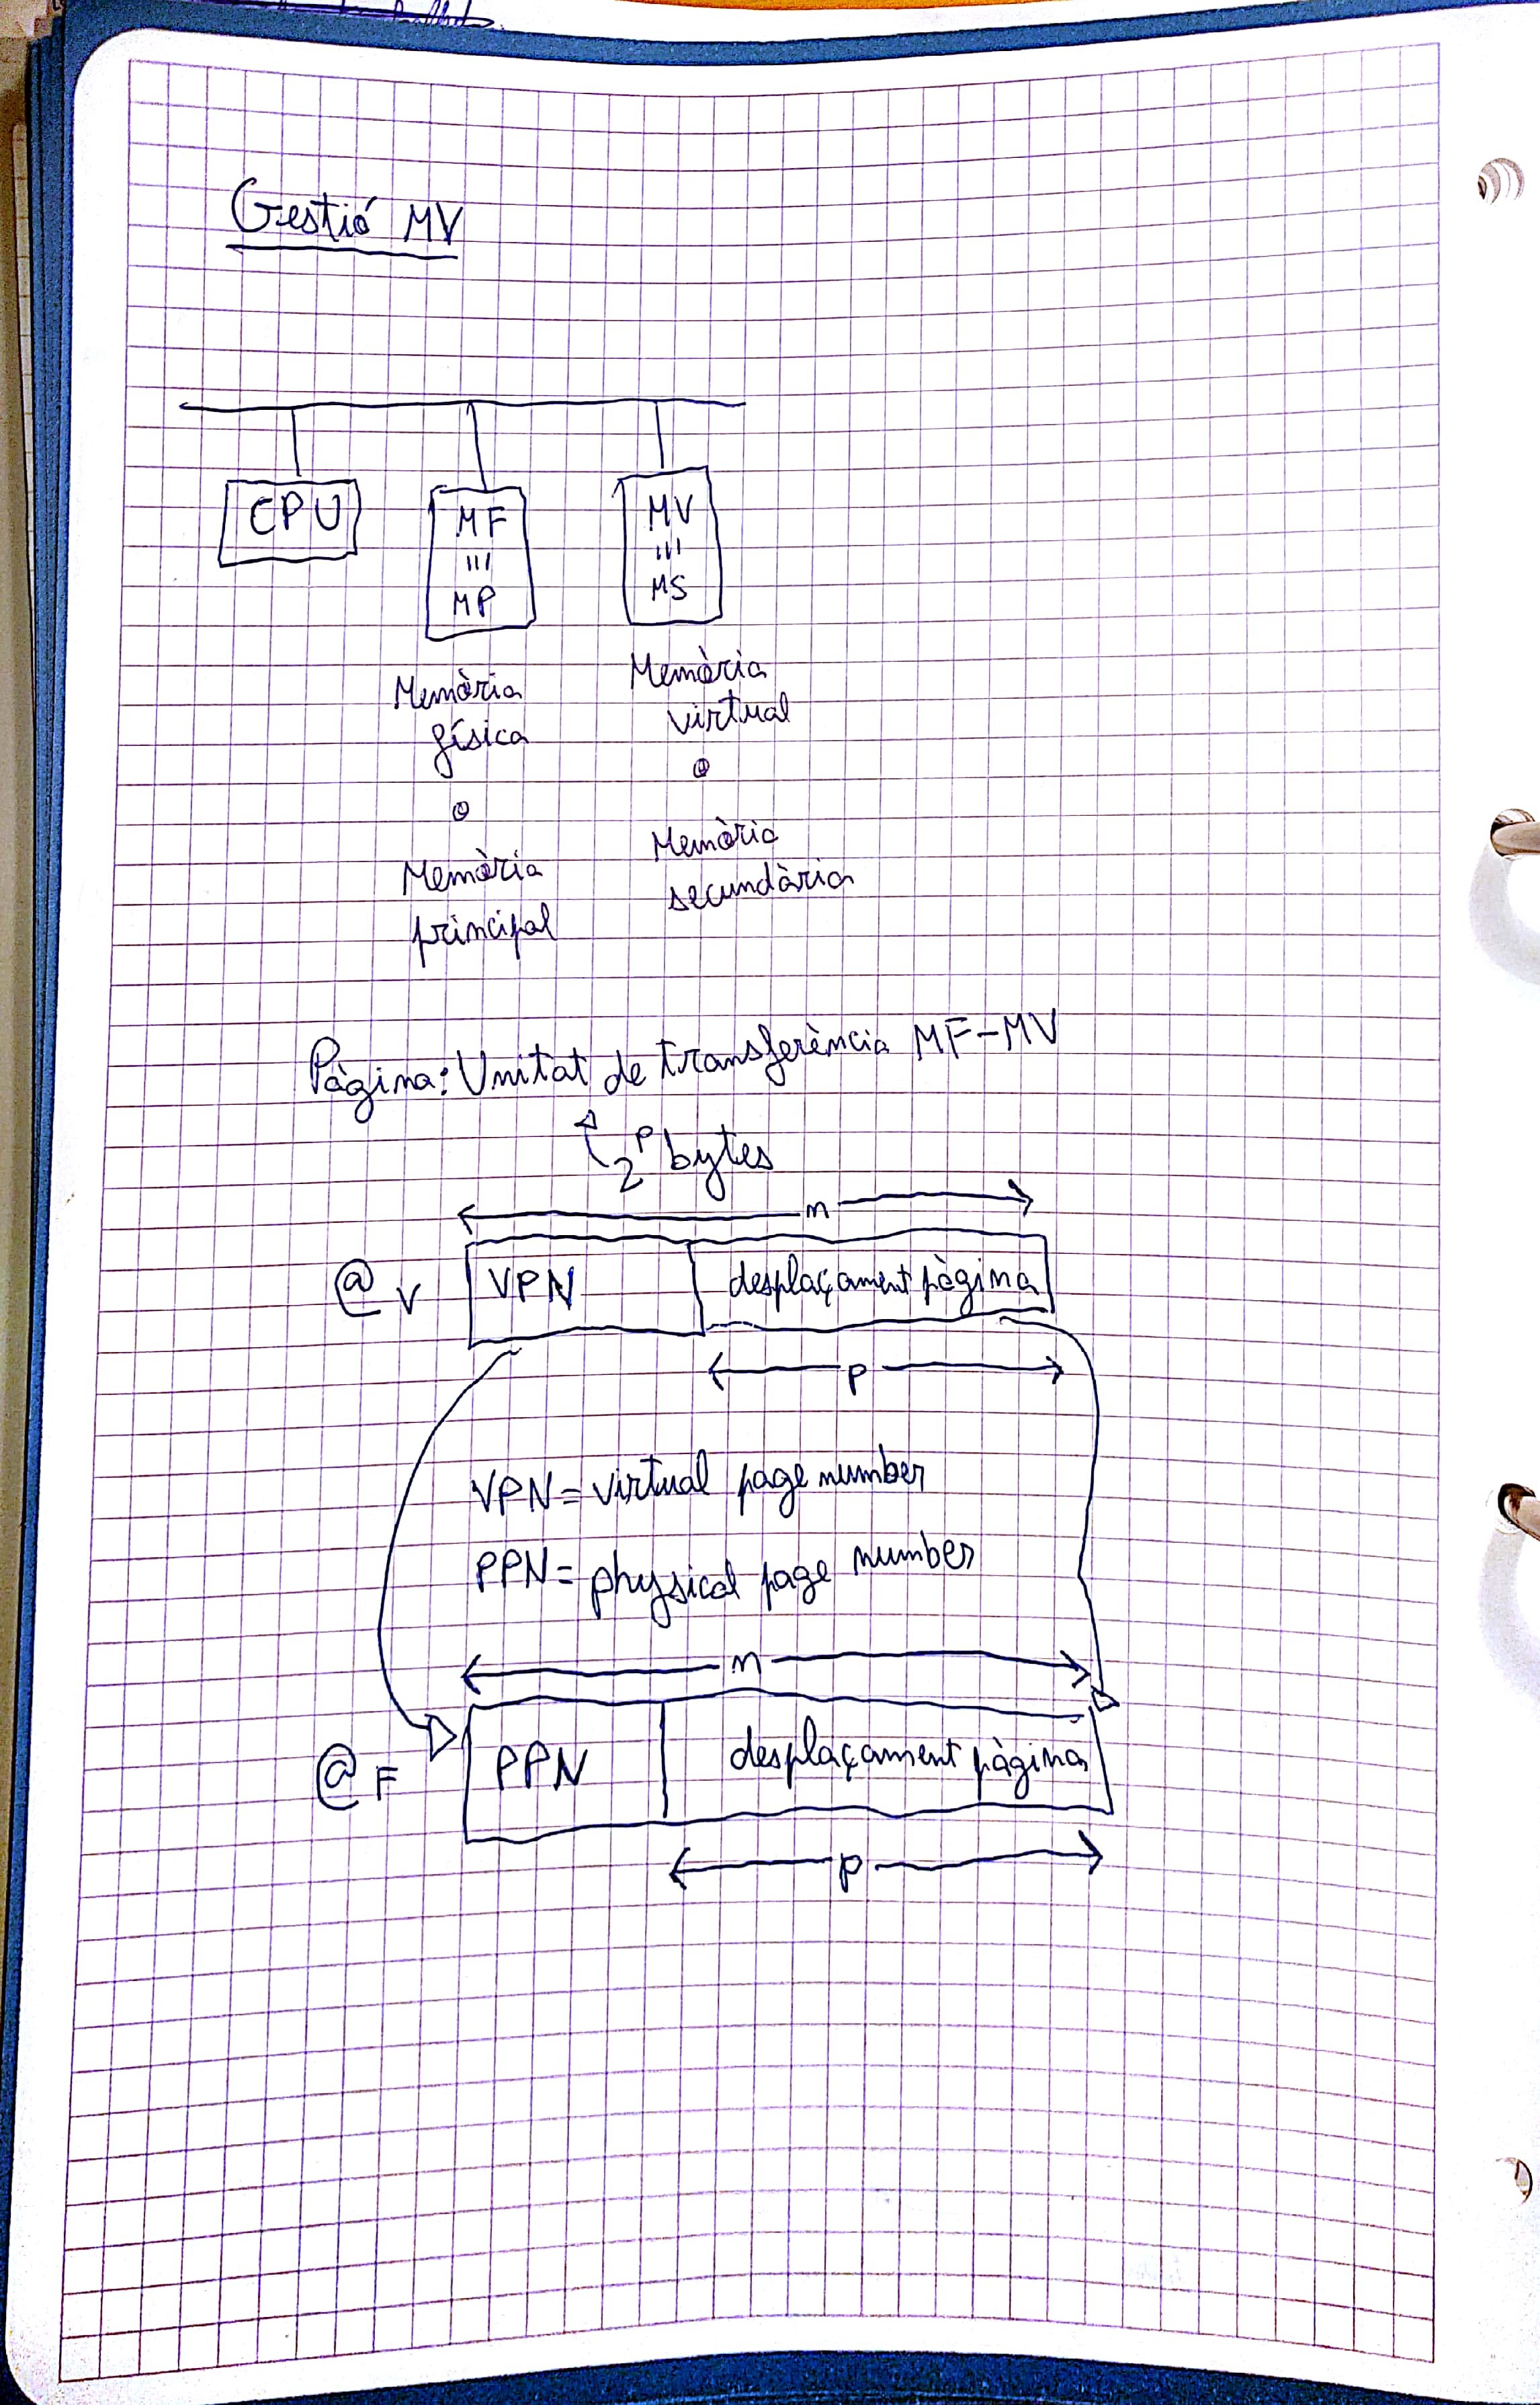 Gestió MV
CPU
MF
III
MP
MV
III
MS
Memòria
física
o
Memòria
principal
Memòria
virtual
o
Memòria
secundària
Pàgina: Unitat de transferència MF-MV
2^p bytes
n
@V VPN desplaçament pàgina
p
VPN = virtual page number
PPN = physical page number
m
@F PPN desplaçament pàgina
p